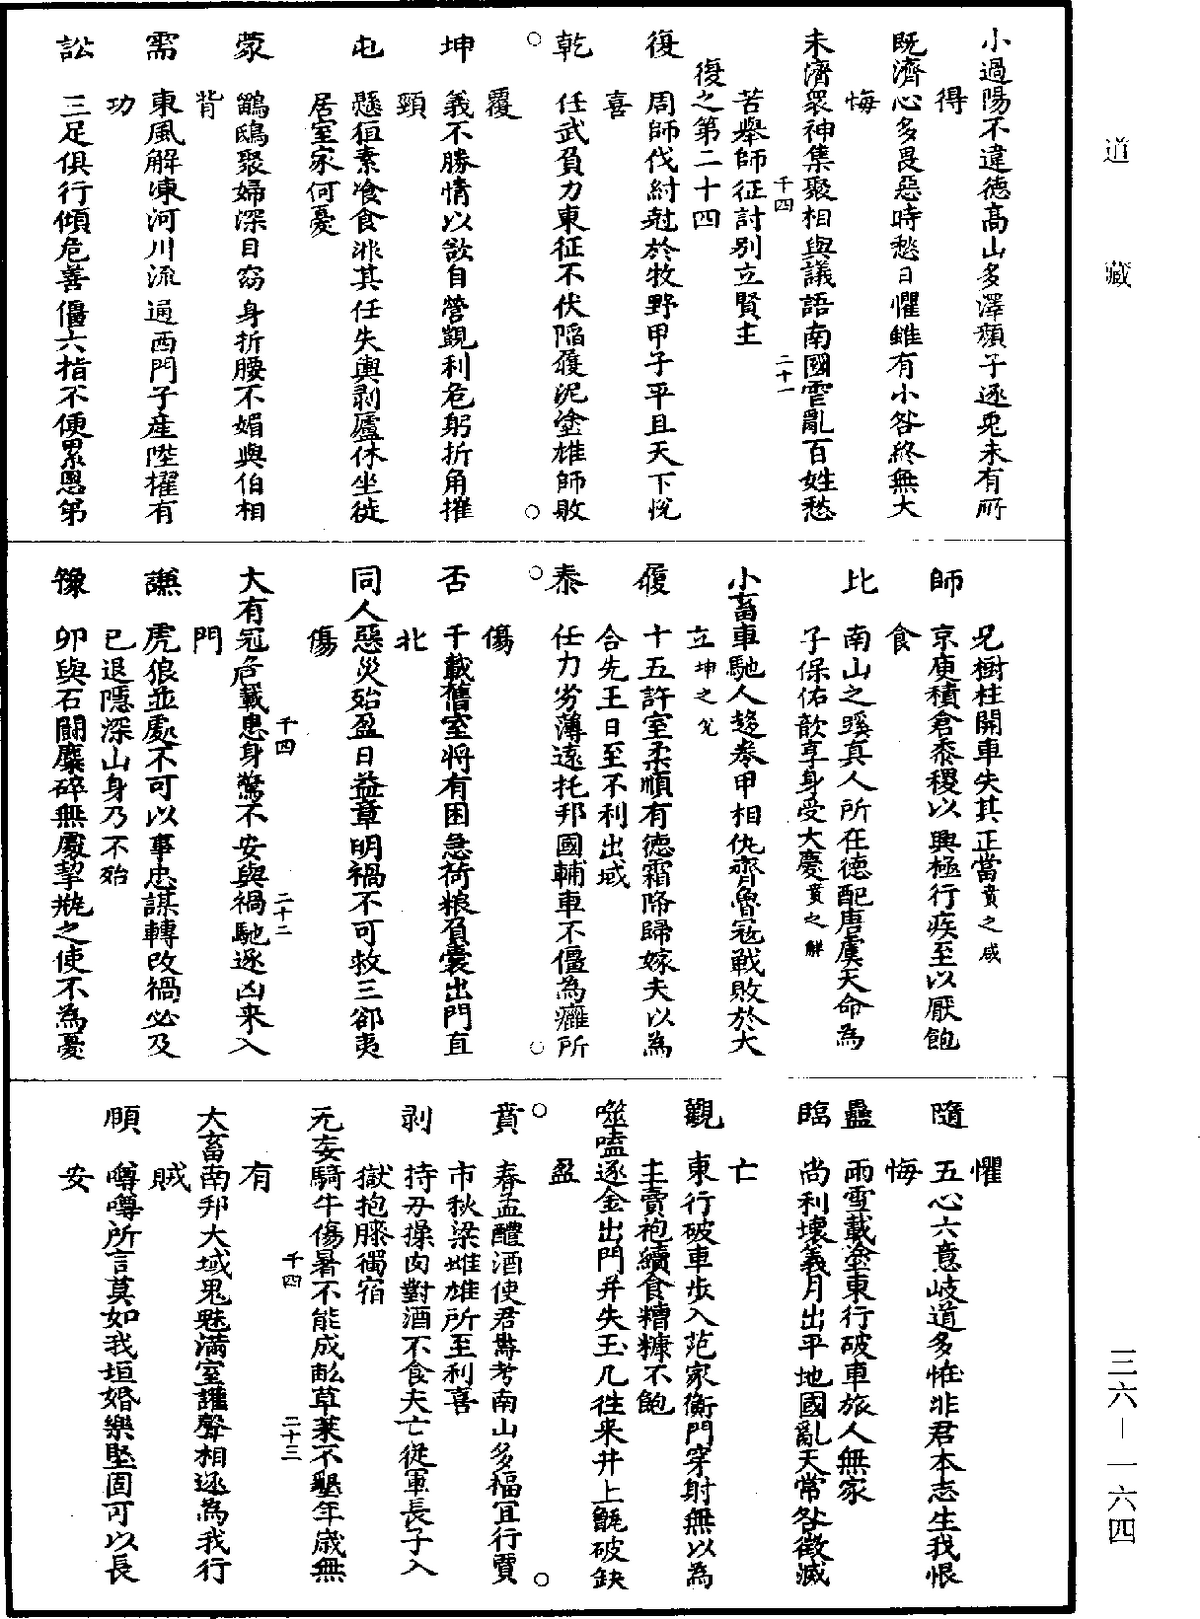 道藏
小過陽不違德高山多澤顏子逐兎未有所
得
既濟心多畏惡時愁日懼雖有小咎終無大
悔
未濟衆神集聚相與議語南國雩亂百姓愁
千四
二十一
苦舉師征討別立賢主
復之第二十四
復 周師伐紂尅於牧野甲子平旦天下悅
喜
乾 任武負力東征不伏陷履泥塗雄師敗
覆
坤 義不勝情以欲自營覬利危躬折角摧
頸
屯 懸狟素飡食非其任失輿剥廬休坐徙
居室家何憂
蒙 鶻鴟聚婦深目窈身折腰不媚與伯相
背
需 東風解凍河川流通西門子産陞擢有
功
訟 三足俱行傾危善僵六指不便累恩第
兄樹柱開車失其正當賁之咸
師 京庾積倉黍稷以興極行疾至以厭飽
食
比 南山之蹊真人所在德配唐虞天命為
子保佑歆享身受大慶賁之解
小畜車馳人趍卷甲相仇齊魯冦戰敗於大
立坤之兌
履 十五許室柔順有德霜降歸嫁夫以為
合先王日至不利出域
泰 任力劣薄遠托邦國輔車不僵為癰所
傷
否 千載舊室将有困急荷粮負囊出門直
北
同人惡災殆盈日益章明禍不可救三郤夷
傷
大有冠危戴患身驚不安與禍馳逐凶来入
千四
二十二
門
謙 虎狼並處不可以事忠謀轉改禍必及
已退隱深山身乃不殆
豫 卯與石鬬麋碎無處挈瓶之使不為憂
懼
隨 五心六意岐道多恠非君本志生我恨
悔
蠱 雨雪載塗東行破車旅人無家
臨 尚利壊義月出平地國亂天常咎徵滅
亡
觀 東行破車步入范家衡門穿射無以為
主賣袍續食糟糠不飽
噬嗑逐金出門并失玉几往来井上甑破鈌
盈
賁 春孟醴酒使君夀考南山多福冝行賈
市秋梁雌雄所至利喜
剥 持刄操肉對酒不食夫亡從軍長子入
獄抱膝獨宿
无妄騎牛傷暑不能成畝草莱不墾年歳無
千四
二十三
有
大畜南邦大域鬼魅満室讙聲相逐為我行
賊
頤 噂噂所言莫如我垣婚樂堅固可以長
安
三六—一六四